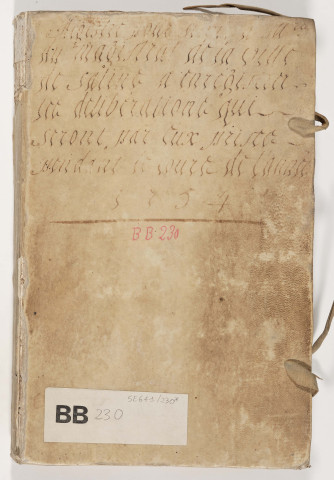 Registre pour
du magistrat de la ville
de Saline a enregistrer
les deliberations qui
seront par eux prises
pendant le cours de l'année
1 7 5 4
BB·230
52641/230*
BB 230